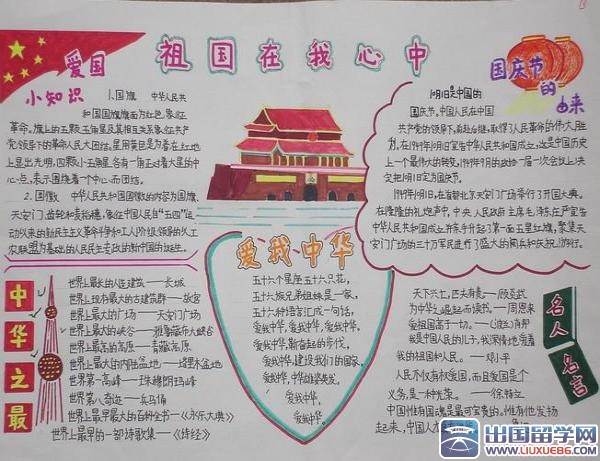 祖国在我心中
爱国
小知识
1.国旗 中华人民共
和国国旗旗面为红色,象征
革命。旗上的五颗五角星及其相互关系象征共产
党领导下的革命人民大团结。星用黄色是为着在红地
上显出光明,四颗小五角星各有一角正对着大星的中
心点,表示围绕着一个中心而团结。
2.国徽 中华人民共和国国徽的内容为国旗
天安门、齿轮和麦稻穗,象征中国人民自“五四”运
动以来的新民主主义革命斗争和工人阶级领导的以工
农联盟为基础的人民民主专政的新中国的诞生。
国庆节
的
由来
10月1日是中国的
国庆节。中国人民在中国
共产党的领导下,前赴后继,取得了人民革命的伟大胜
利。在1949年10月1日宣告中华人民共和国成立。这是中国历史
上一个最伟大的转变。1949年9月的政协一届一次会议上决
定把10月1日定为国庆节。
1949年10月1日,在首都北京天安门广场举行了开国大典。
在隆隆的礼炮声中,中央人民政府主席毛泽东庄严宣告
中华人民共和国成立并亲手升起了第一面五星红旗。聚集天
安门广场的三十万军民进行了盛大的阅兵和庆祝游行。
中华之最
世界上最长的人造建筑——长城
世界上现存最大的古建筑群——故宫
世界上最大的广场——天安门广场
世界上最大的峡谷——雅鲁藏布大峡谷
世界上最高的高原——青藏高原
世界上最大的内陆盆地——塔里木盆地
世界第一高峰——珠穆朗玛峰
世界第八奇迹——兵马俑
世界上最早最大的百科全书——《永乐大典》
世界上最早的一部诗歌集——《诗经》
爱我中华
五十六个星座五十六枝花,
五十六族兄弟姐妹是一家,
五十六种语言汇成一句话,
爱我中华,爱我中华,爱我中华。
爱我中华,健儿奋起的步伐,
爱我中华,建设我们的国家,
爱我中华,中华雄姿英发,
爱我中华,
爱我中华。
名人名言
天下兴亡,匹夫有责——顾炎武
为中华之崛起而读书——周恩来
爱祖国高于一切。——肖邦
是中国人民的儿子,我深情地爱着
我的祖国和人民。——邓小平
人民不仅有权爱国,而且爱国是个
义务,是一种光荣。——徐特立
中国惟有国魂是最可宝贵的。惟有他发扬
起来,中国人
出国留学网
WWW.LIUXUE86.COM